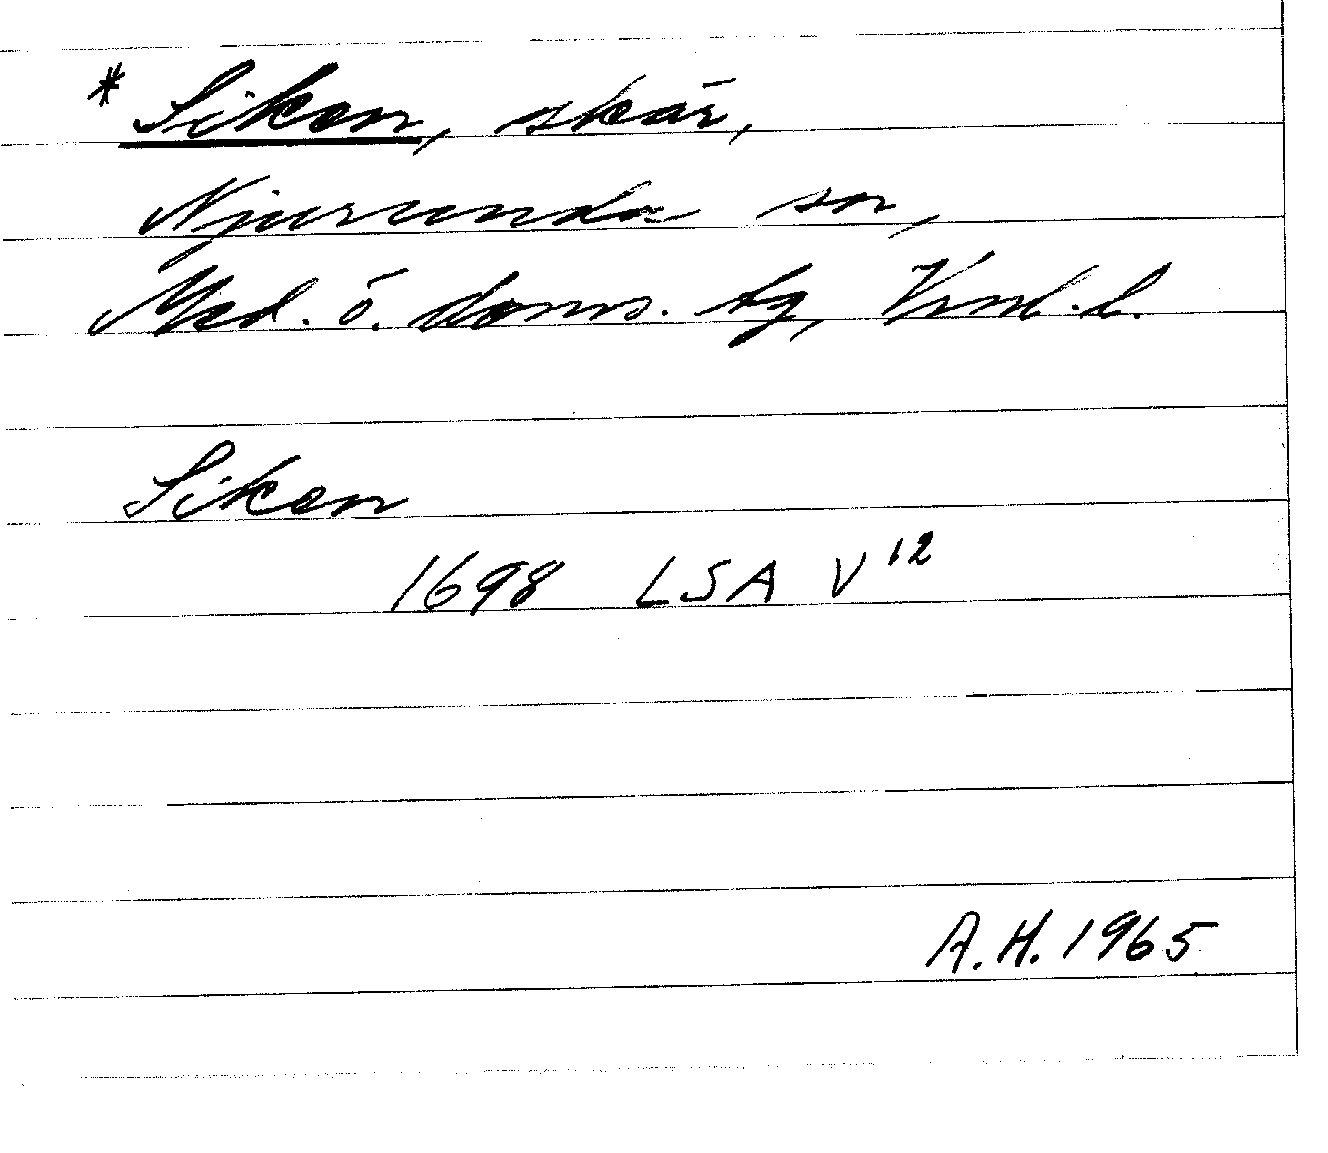 * Siken, skär,
Njurunda sn,
Med. ö. doms. tg, Vrnl. l.
Siken
1698 LSA V 12
A.H. 1965